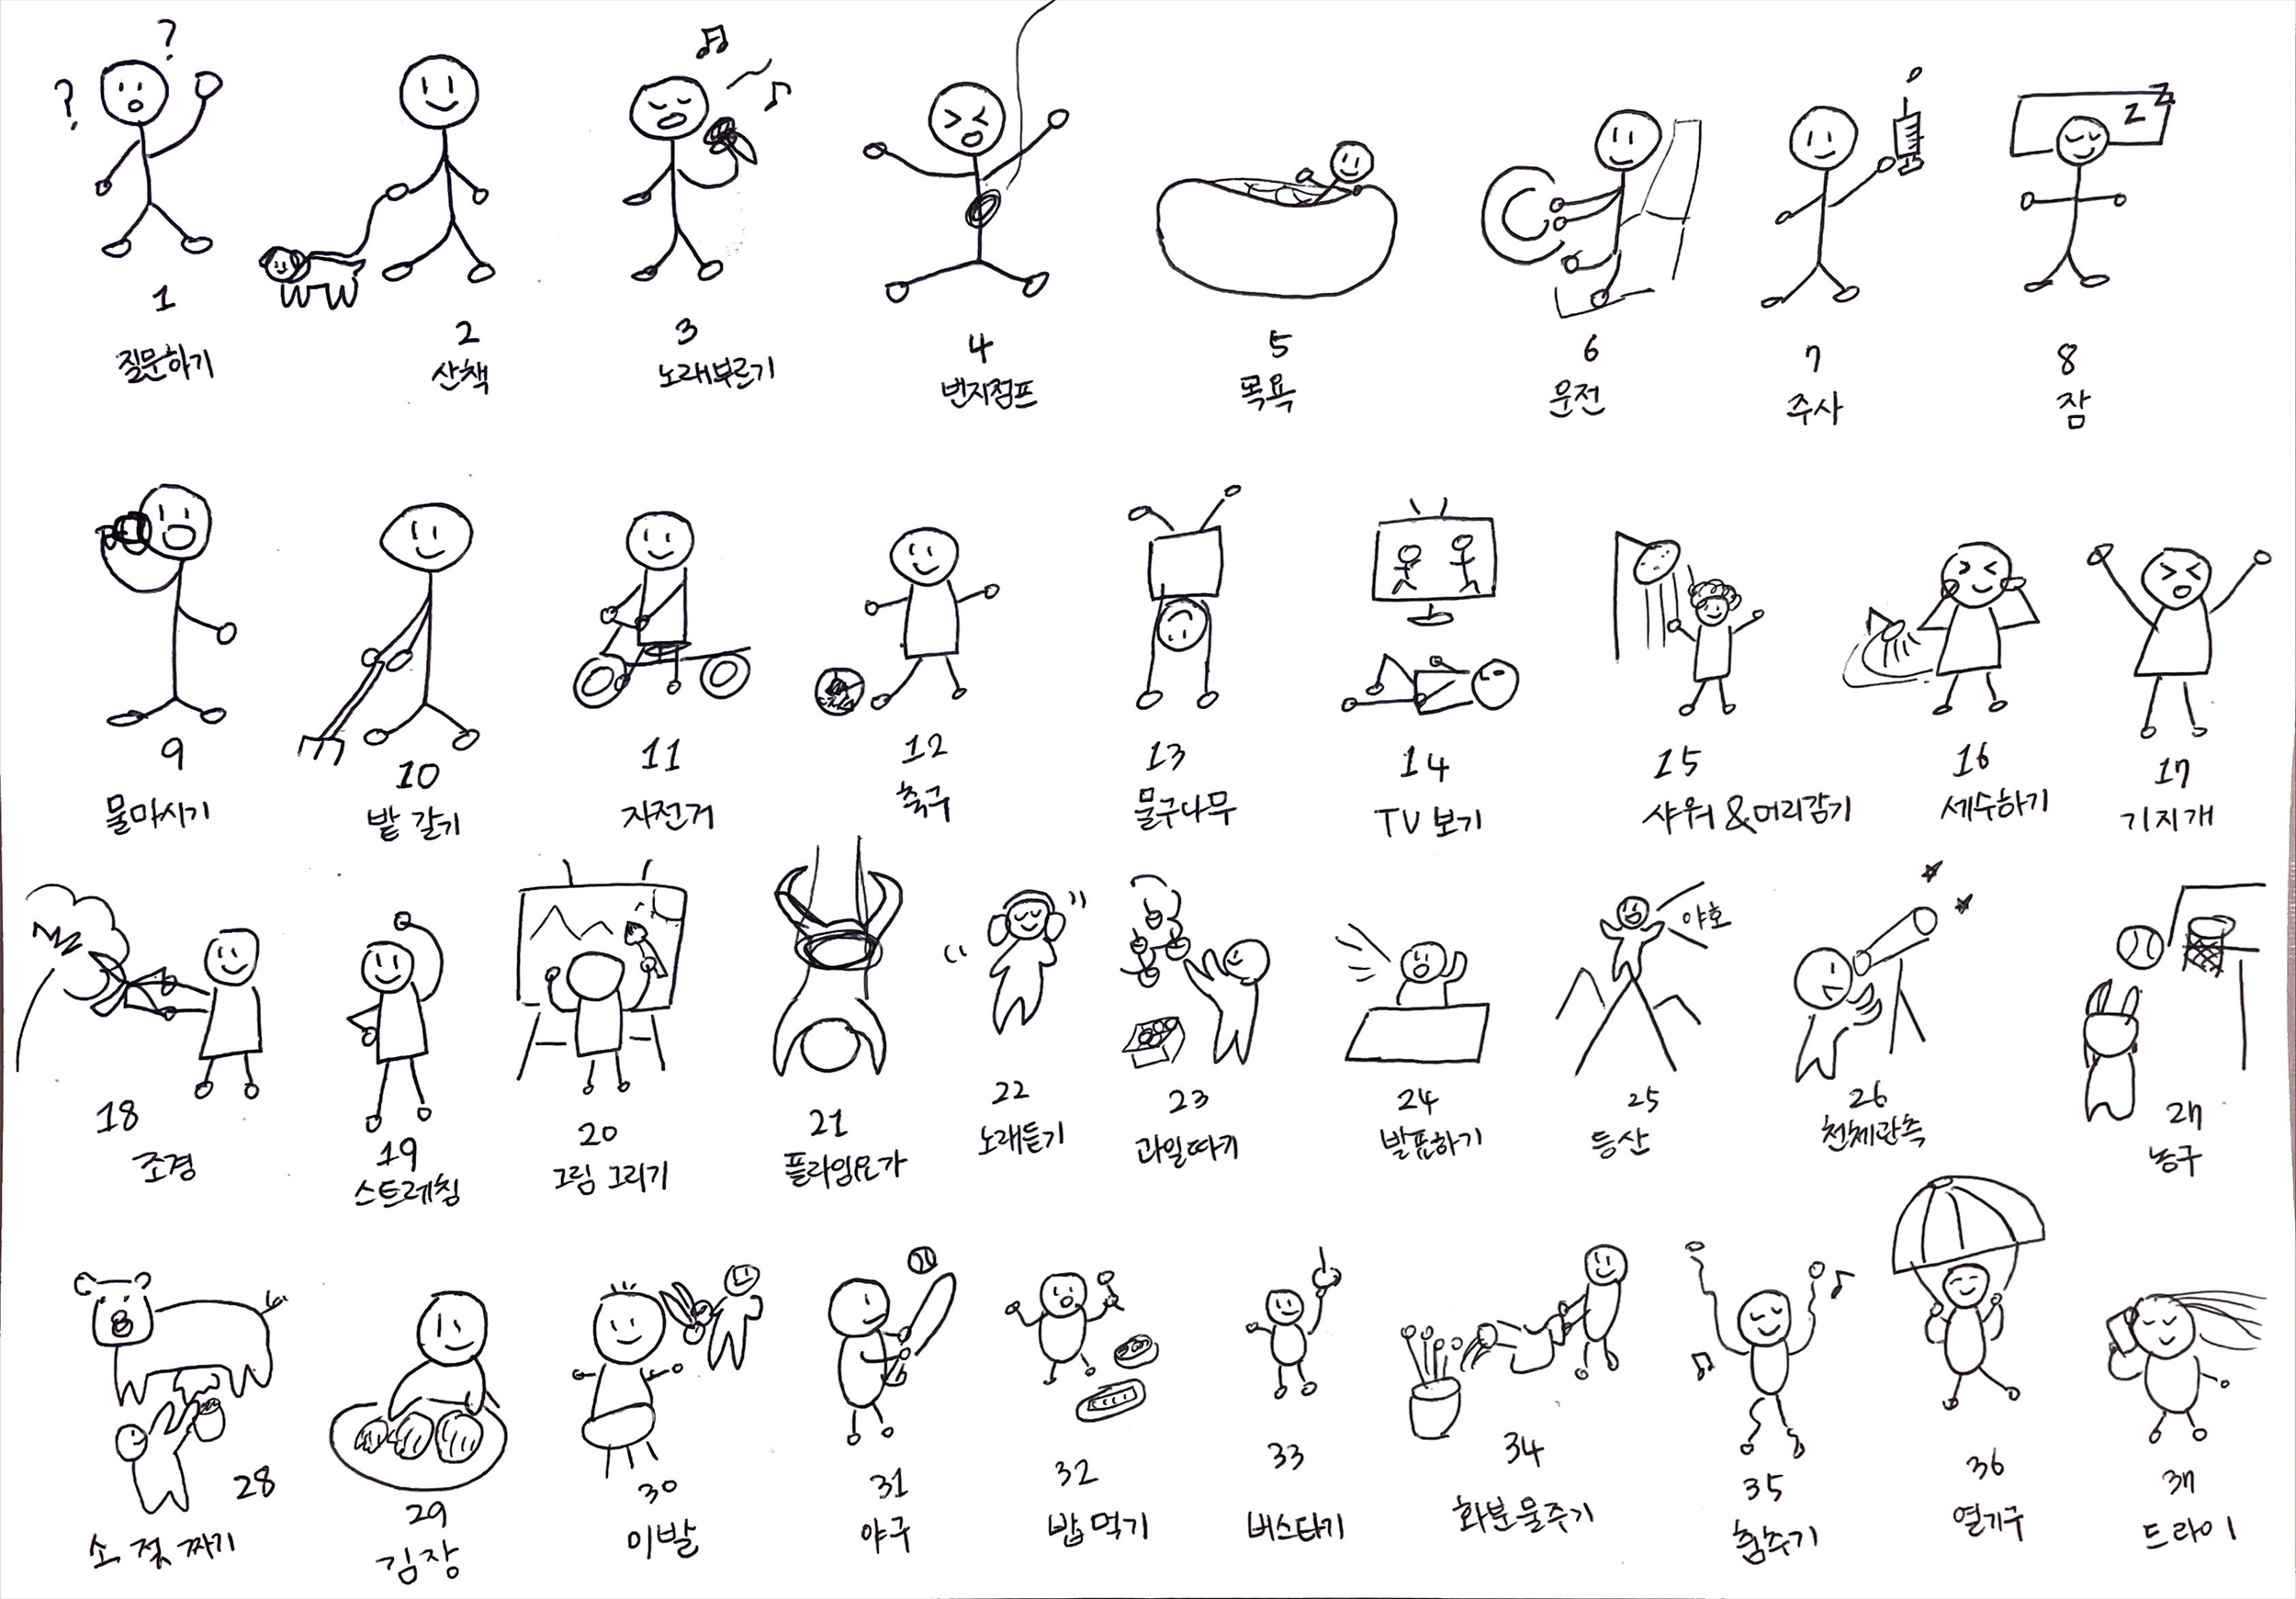 ? ?
1
질문하기
2
산책
3
노래부르기
4
번지점프
5
목욕
6
운전
7
주사
z z
8
잠
9
물마시기
10
밭 갈기
11
자전거
12
축구
13
물구나무
14
TV 보기
15
샤워 & 머리감기
16
세수하기
17
기지개
18
조경
19
스트레칭
20
그림 그리기
21
플라잉요가
22
노래듣기
23
과일따기
24
발표하기
야호
25
등산
26
천체관측
27
농구
28
소 젖 짜기
29
김장
30
이발
31
야구
32
밥 먹기
33
버스타기
34
화분물주기
35
춤추기
36
열기구
37
드라이